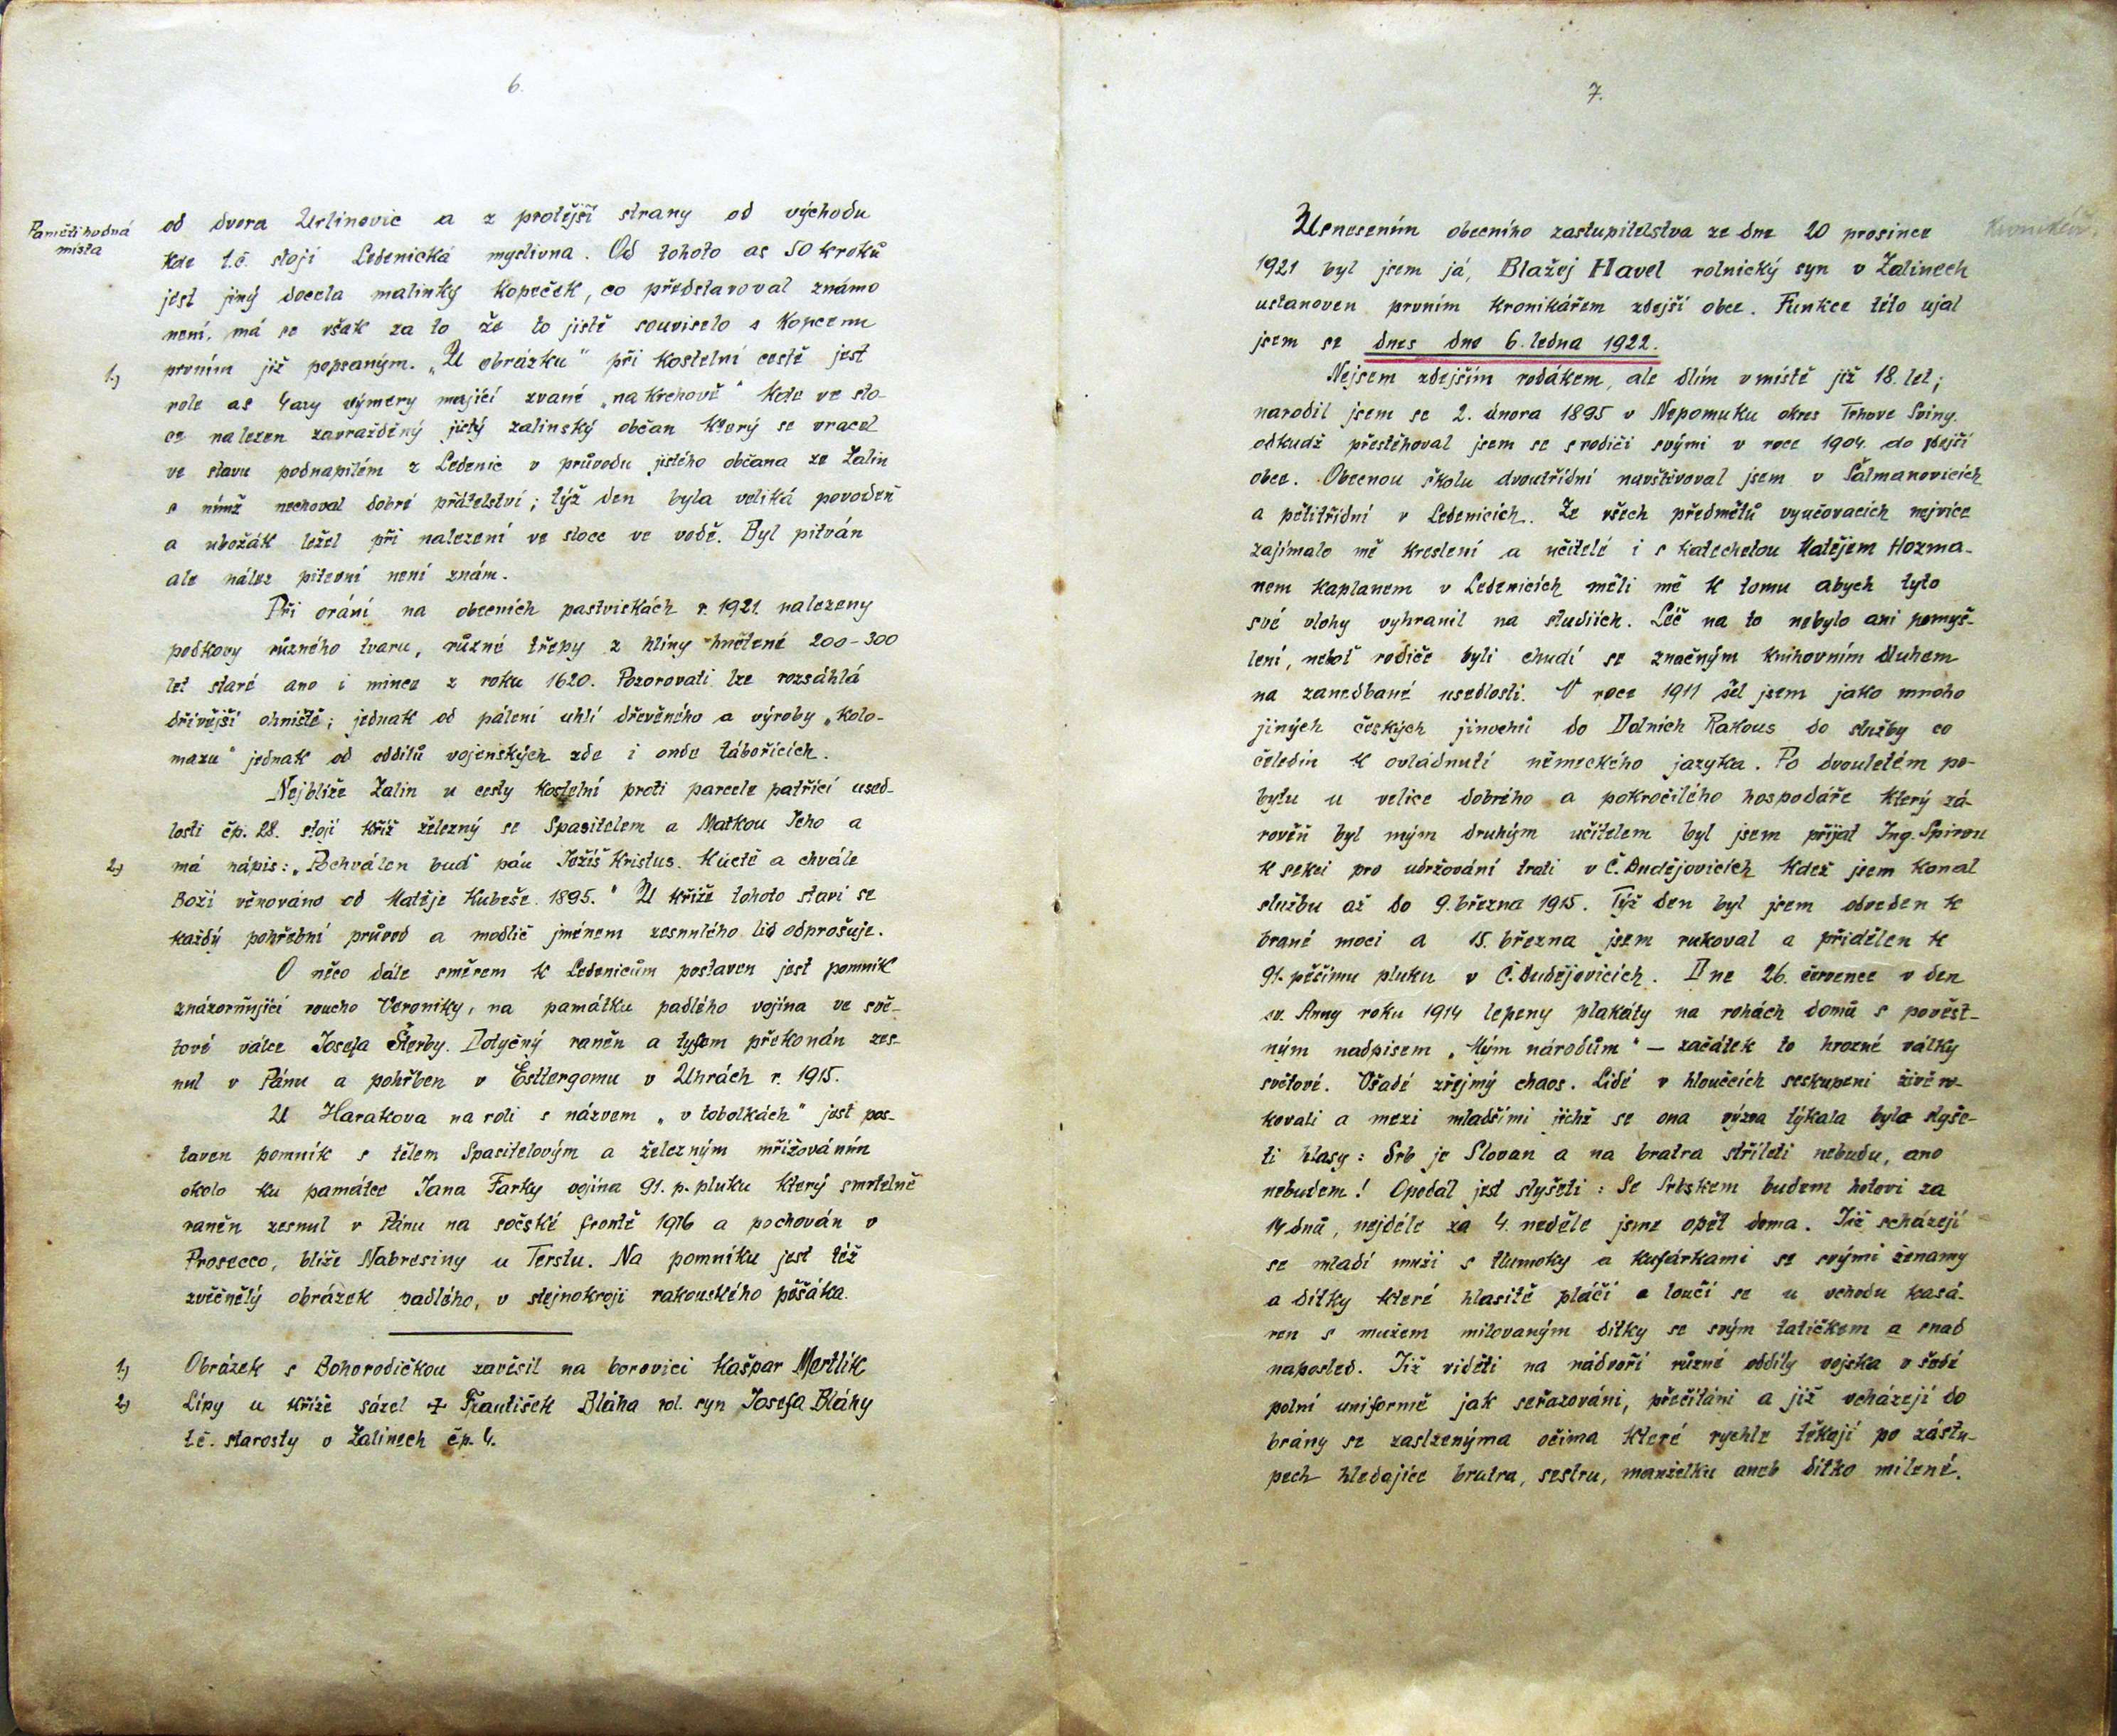 6.
Pamětihodná
místa
od dvora Urlinovic a z protější strany od východu
kde t.č. stojí Ledenická myslivna. Od tohoto as 50 kroků
jest jiný docela malinky kopeček, co představoval známo
není, má se však za to že to jistě souviselo s kopcem
1.) prvním již popsaným. „U obrázku" při kostelní cestě jest
role as 4 ary výmery mající zvané „na krchově" kde ve sto-
ce nalezen zavražděný jistý zalinský občan který se vracel
ve stavu podnapilém z Ledenic v průvodu jistého občana ze Žalin
s nímž nechoval dobré přátelství; týž den byla veliká povodeň
a ubožák ležel při nalezení ve stoce ve vodě. Byl pitván
ale nález pitevní není znám.
Při orání na obecních pastvickách r. 1921 nalezeny
podkovy různého tvaru, různé střepy z hlíny hnětené 200-300
let staré ano i mince z roku 1620. Pozorovati lze rozsáhlá
dřívější ohniště; jednak od pálení uhlí dřevěného a výroby „kolo-
mazu" jednak od oddílů vojenských zde i onde tábořících.
Nejblíže Žalin u cesty kostelní proti parcele patřící used-
losti čp. 28. stojí kříž železný se Spasitelem a Matkou Jeho a
2.) má nápis: „Pochválen buď pán Ježíš Kristus. Kúctě a chvále
Boží věnováno od Matěje Kubeše. 1895." U kříže tohoto staví se
každý pohřební průvod a modlič jménem zesnulého lid odprošuje.
O něco dále směrem k Ledenicům postaven jest pomník
znázorňující roucho Veroniky, na památku padlého vojína ve svě-
tové válce Josefa Šterby. Dotyčný raněn a tyfem překonán zes-
nul v Pánu a pohřben v Estergomu v Uhrách r. 1915.
U Harakova na roli s názvem „v tobolkách" jest pos-
taven pomník s tělem Spasitelovým a železným mřížováním
okolo ku památce Jana Farky vojína 91. p. pluku který smrtelně
raněn zesnul v Pánu na sočské frontě 1916 a pochován v
Prosecco, blíže Nabresiny u Terstu. Na pomníku jest též
zvěčnělý obrázek padlého, v stejnokroji rakouského pěšáka.
1.) Obrázek s Bohorodičkou zavěsil na borovici Kašpar Mertlík
2.) Lípy u kříže sázel ‡ František Bláha rol. syn Josefa Bláhy
t.č. starosty v Žalinech čp. 4.
7.
Kronikář.
Usnesením obecního zastupitelstva ze dne 20 prosince
1921 byl jsem já, Blažej Havel rolnický syn v Žalinech
ustanoven prvním kronikářem zdejší obce. Funkce této ujal
jsem se dnes dne 6. ledna 1922.
Nejsem zdejším rodákem, ale dlím v místě již 18. let;
narodil jsem se 2. února 1895 v Nepomuku okres Trhove Sviny.
odkudž přestěhoval jsem se s rodiči svými v roce 1904. do zdejší
obce. Obecnou školu dvoutřídní navštivoval jsem v Šalmanovicích
a pětitřídní v Ledenicích. Ze všech předmětů vyučovacích nejvíce
zajímalo mě kreslení a učitelé i s katechetou Matějem Hozma-
nem kaplanem v Ledenicích měli mě k tomu abych tyto
své vlohy vyhranil na studiích. Léč na to nebylo ani pomyš-
lení, neboť rodiče byli chudí se značným knihovním dluhem
na zanedbané usedlosti. V roce 1911 šel jsem jako mnoho
jiných českých jinochů do Dolních Rakous do služby co
čeledín k ovládnutí německého jazyka. Po dvouletém po-
bytu u velice dobrého a pokročilého hospodáře který zá-
roveň byl mým druhým učitelem byl jsem přijat Ing. Spirou
k sekci pro udržování trati v Č. Budějovicích kdež jsem konal
službu až do 9. března 1915. Týž den byl jsem odveden k
brané moci a 15. března jsem rukoval a přidělen k
91. pěšímu pluku v Č. Budějovicích. Dne 26. července v den
sv. Anny roku 1914 lepeny plakáty na rohách domů s pověst-
ným nadpisem „Mým národům" — začátek to hrozné války
světové. Všade zřejmý chaos. Lidé v hloučcích seskupeni živě ro-
kovali a mezi mladšími jichž se ona výzva týkala byla slyše-
ti hlasy: Srb je Slovan a na bratra stříleti nebudu, ano
nebudem! Opodál jest slyšeti: Se Srbskem budem hotovi za
14 dnů, nejdéle za 4. neděle jsme opět doma. Již scházejí
se mladí muži s tlumoky a kufárkami se svými ženamy
a dítky které hlasitě pláčí a loučí se u vchodu kasá-
ren s mužem milovaným dítky se svým tatíčkem a snad
naposled. Již viděti na nádvoří různé oddíly vojska v šedé
polní uniformě jak seřazováni, přečítáni a již vcházejí do
brány se zaslzenýma očima které rychle těkají po zástu-
pech hledajíce bratra, sestru, manželku aneb dítko milené.